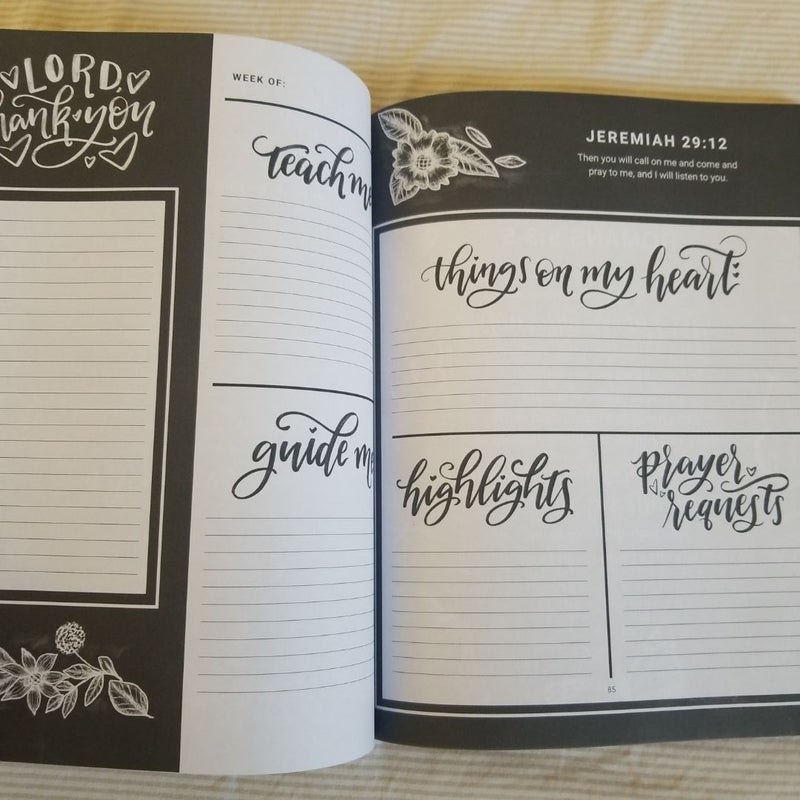 LORD,
thank you
WEEK OF:
teach me
guide me
JEREMIAH 29:12
Then you will call on me and come and
pray to me, and I will listen to you.
things on my heart
highlights
prayer
requests
85